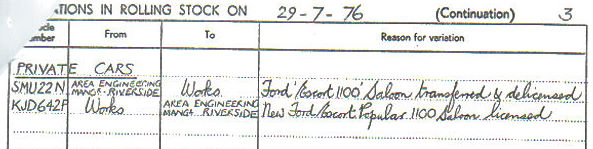 ATIONS IN ROLLING STOCK ON 29-7-76 (Continuation) 3
From To Reason for variation
PRIVATE CARS
SMU22N AREA ENGINEERING MANGR. RIVERSIDE Works. Ford 'Escort 1100' Saloon transferred & delicensed
KJD642P Works AREA ENGINEERING MANGR RIVERSIDE New Ford Escort Popular 1100 Saloon licensed